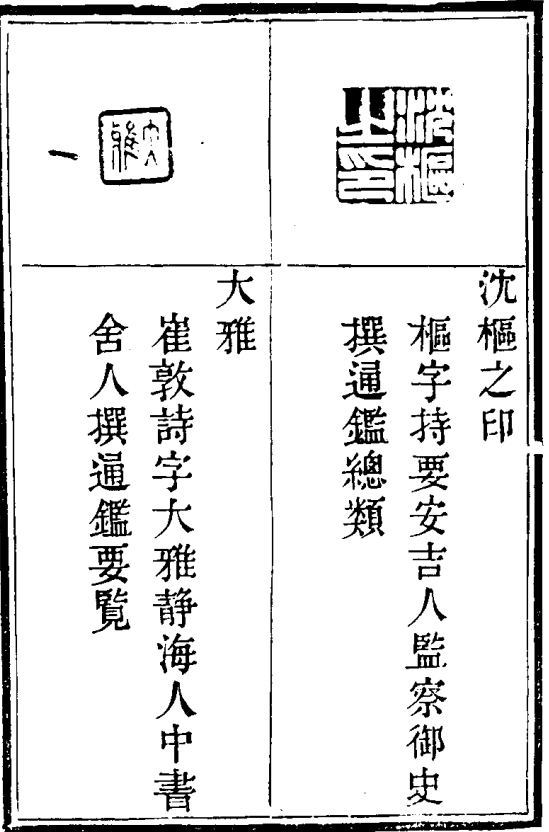 沈樞之印
沈樞之印
樞字持要安吉人監察御史
撰通鑑總類
大雅
大雅
崔敦詩字大雅静海人中書
舍人撰通鑑要覧